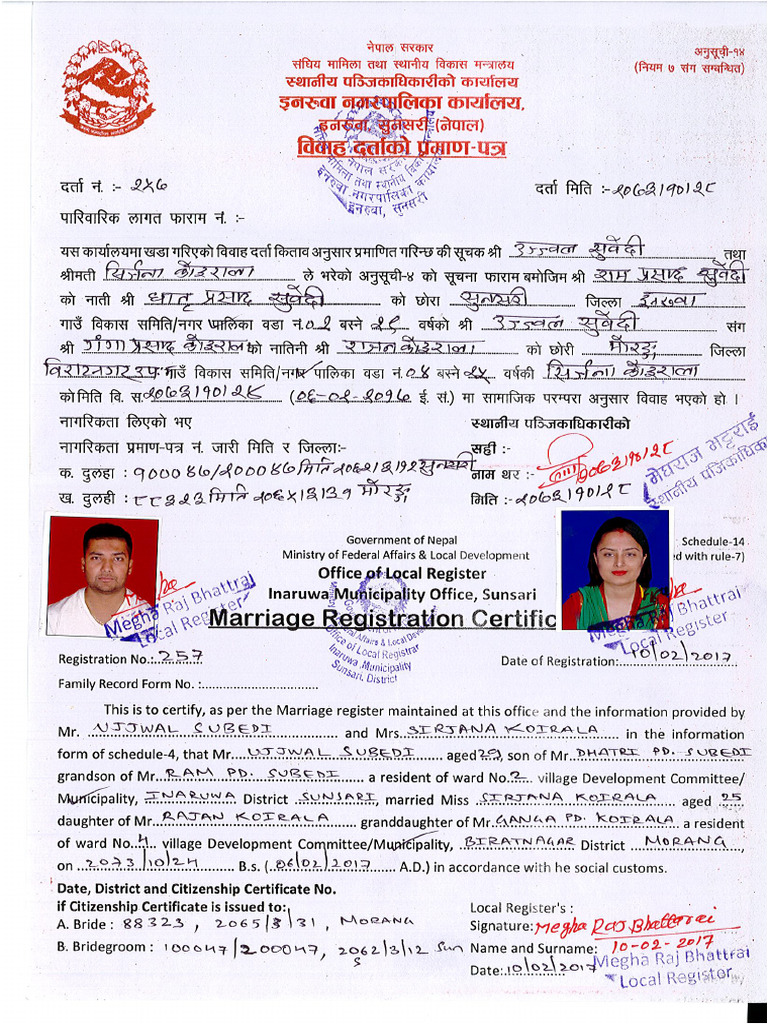 नेपाल सरकार
संघिय मामिला तथा स्थानीय विकास मन्त्रालय
स्थानीय पञ्जिकाधिकारीको कार्यालय
इनरुवा नगरपालिका कार्यालय,
इनरुवा, सुनसरी (नेपाल)
विवाह दर्ताको प्रमाण-पत्र
अनुसूची-१४
(नियम ७ संग सम्बन्धित)
दर्ता नं. :- २५७
दर्ता मिति :- २०७३।१०।२८
पारिवारिक लागत फाराम नं. :-
यस कार्यालयमा खडा गरिएको विवाह दर्ता किताव अनुसार प्रमाणित गरिन्छ की सूचक श्री उज्जवल सुवेदी तथा
श्रीमती सिर्जना कोइराला ले भरेको अनुसूची-४ को सूचना फाराम बमोजिम श्री राम प्रसाद सुवेदी
को नाती श्री धातृ प्रसाद सुवेदी को छोरा सुनसरी जिल्ला इनरुवा
गाउँ विकास समिति/नगर पालिका वडा नं.०२ बस्ने २९ वर्षको श्री उज्जवल सुवेदी संग
श्री गंगा प्रसाद कोइराला को नातिनी श्री राजन कोइराला को छोरी मोरङ्ग जिल्ला
विराटनगर उप गाउँ विकास समिति/नगर पालिका वडा नं.०४ बस्ने २५ वर्षकी सिर्जना कोइराला
को मिति वि. स. २०७३।१०।२४ (०६-०२-२०१७ ई. सं.) मा सामाजिक परम्परा अनुसार विवाह भएको हो ।
नागरिकता लिएको भए
स्थानीय पञ्जिकाधिकारीको
नागरिकता प्रमाण-पत्र नं. जारी मिति र जिल्लाः-
सही :-
क. दुलहा : १०००४७/२०००४७ मिति २०६२।३।१२ सुनसरी
नाम थर :-
२०७३।१०।२८
ख. दुलही : ८८३२३ मिति २०६५।३।३१ मोरङ्ग
मिति :- २०७३।१०।२८
मेघराज भट्टराई
स्थानीय पञ्जिकाधिकारी
Government of Nepal
Schedule-14
Ministry of Federal Affairs & Local Development
ed with rule-7)
Office of Local Register
Inaruwa Municipality Office, Sunsari
Marriage Registration Certific
Megha Raj Bhattrai
Local Register
Megha Raj Bhattrai
Local Register
Government of Nepal
Office of Local Registrar
Inaruwa Municipality
Sunsari, District
Registration No.: 257
Date of Registration: 10/02/2017
Family Record Form No. :
This is to certify, as per the Marriage register maintained at this office and the information provided by
Mr. UJJWAL SUBEDI and Mrs. SIRJANA KOIRALA in the information
form of schedule-4, that Mr. UJJWAL SUBEDI aged 29, son of Mr. DHATRI PD. SUBEDI
grandson of Mr. RAM PD. SUBEDI a resident of ward No. 2 village Development Committee/
Municipality, INARUWA District SUNSARI, married Miss SIRJANA KOIRALA aged 25
daughter of Mr. RAJAN KOIRALA granddaughter of Mr. GANGA PD. KOIRALA a resident
of ward No. 4 village Development Committee/Municipality, BIRATNAGAR District MORANG,
on 2073/10/24 B.s. (06/02/2017 A.D.) in accordance with he social customs.
Date, District and Citizenship Certificate No.
if Citizenship Certificate is issued to:
Local Register's :
A. Bride : 88323, 2065/3/31, MORANG
Signature: Megha Raj Bhattarai
B. Bridegroom : 100047/200047, 2062/3/12 Sun
Name and Surname: 10-02-2017
Megha Raj Bhattrai
Date: 10/02/2017
Local Register